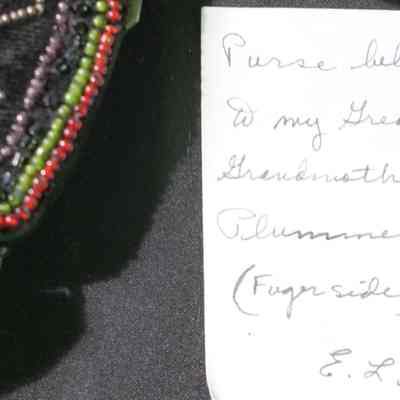 Purse bel
to my Grea
Grandmoth
Plumme
(Fuger side
E. L.